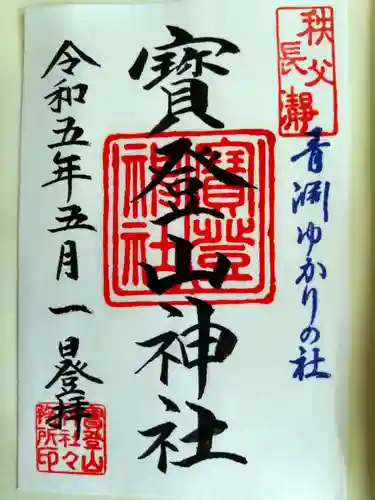 秩父
長瀞
青淵ゆかりの社
寳登山神社
寳登
神社
令和五年五月一日登拝
寳登山
社々
務所印